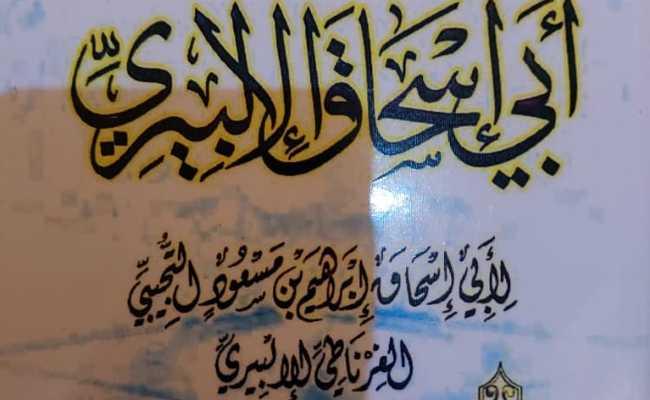 أَبِي إِسْحَاقَ الإِلْبِيرِيِّ
لِأَبِي إِسْحَاقَ إِبْرَاهِيمَ بْنِ مَسْعُودٍ التُّجِيبِيِّ
الغِرْنَاطِيِّ الإِلْبِيرِيِّ